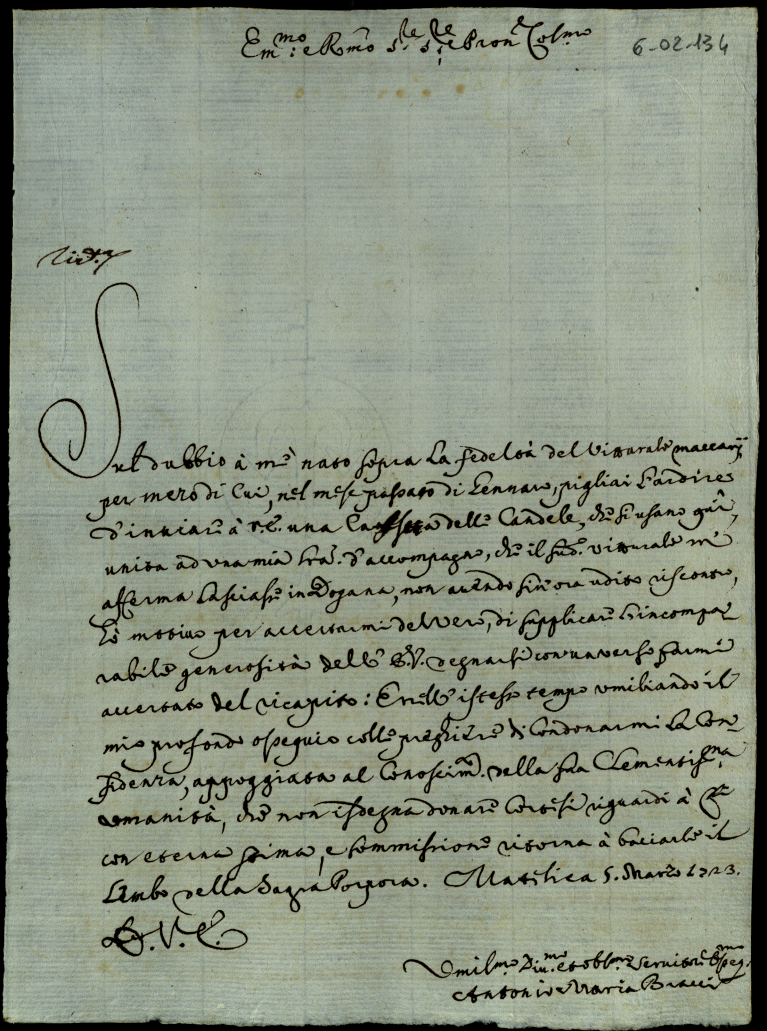 Em:mo e Rmo Sre Sre e Pron Colmo
6-02-134
Sul dubbio à me nato sopra la fedeltà del Vitturale maccarij
per mezo di cui, nel mese passato di Gennaro, pigliai l'ardire
d'inviare à V.E. una Cassetta delle Candele, che si usano quì,
unita ad una mia lra. d'accompagno, che il sud. vitturale mi
afferma lasciasse in Dogana, non avendo sin'ora udito riscontro,
hò motivo per accertarmi del vero, di supplicare l'incompa-
rabile generosità dell' E.V. degnarsi con un verso farmi
accertato del ricapito: E nello istesso tempo umiliando il
mio profondo ossequio colle preghiere di Condonarmi la Con-
fidenza, appoggiata al Conoscim. della sua Clementissma
umanità, che non isdegna donare Cortesi riguardi à
con eterna stima, e sommissione ritorna à baciarle il
Lembo della Sagra Porpora. Matelica 5. Marzo 1723.
D. V. E.
Umilmo Divmo et oblmo Servitore Osseqmo
Antonio Maria Bracci